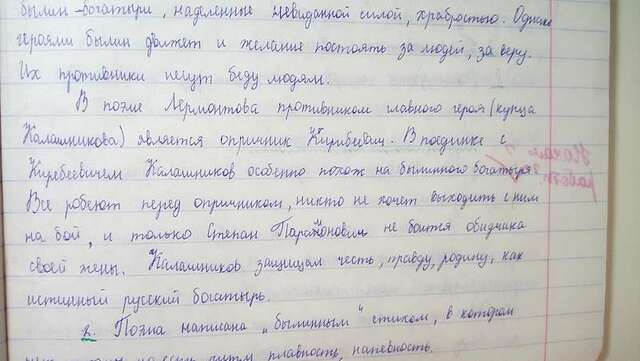 былин-богатыри, наделенные невиданной силой, храбростью.
героями былин движет и желание постоять за людей, за веру.
Их противники несут беду людям.
В поэме Лермонтова противником главного героя (купца
Калашникова) является опричник Кирибеевич. В поединке с
Киребеевичем Калашников особенно похож на былинного богатыря.
Все робеют перед опричником, никто не хочет выходить с ним
на бой, и только Степан Парамонович не боится обидчика
своей жены. Калашников защищал честь, правду, родину, как
истинный русский богатырь.
2. Поэма написана "былинным" стихом, в котором
плавность, напевность.